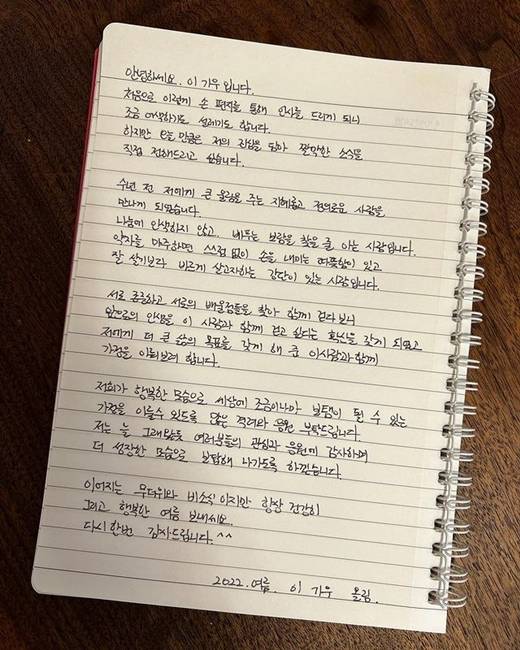 안녕하세요. 이 가우 입니다.
처음으로 이렇게 손 편지를 통해 인사를 드리게 되니
조금 어색하기도 설레기도 합니다.
하지만 오늘 만큼은 저의 진심을 담아 짤막한 소식을
직접 전해드리고 싶습니다.
수년 전 저에게 큰 울림을 주는 지혜롭고 정의로운 사람을
만나게 되었습니다.
나눔에 인색하지 않고 베푸는 보람을 찾을 줄 아는 사람입니다.
약자를 마주하면 스스럼 없이 손을 내미는 따뜻함이 있고
잘 살기보다 바르게 살고자하는 강단이 있는 사람입니다.
서로 존중하고 서로의 배울점들을 찾아 함께 걷다보니
앞으로의 인생을 이 사람과 함께 걷고 싶다는 확신을 갖게 되었고
저에게 더 큰 삶의 목표를 갖게 해 준 이사람과 함께
가정을 이뤄보려 합니다.
저희가 행복한 모습으로 세상에 조금이나마 보탬이 될 수 있는
가정을 이룰수 있도록 많은 격려와 응원 부탁드립니다.
저는 늘 그래왔듯 여러분들의 관심과 응원에 감사하며
더 성장한 모습으로 보답해 나가도록 하겠습니다.
이어지는 무더위와 비소식 이지만 항상 건강히
그리고 행복한 여름 보내세요.
다시 한번 감사드립니다.^^
2022. 여름. 이 가우 올림.